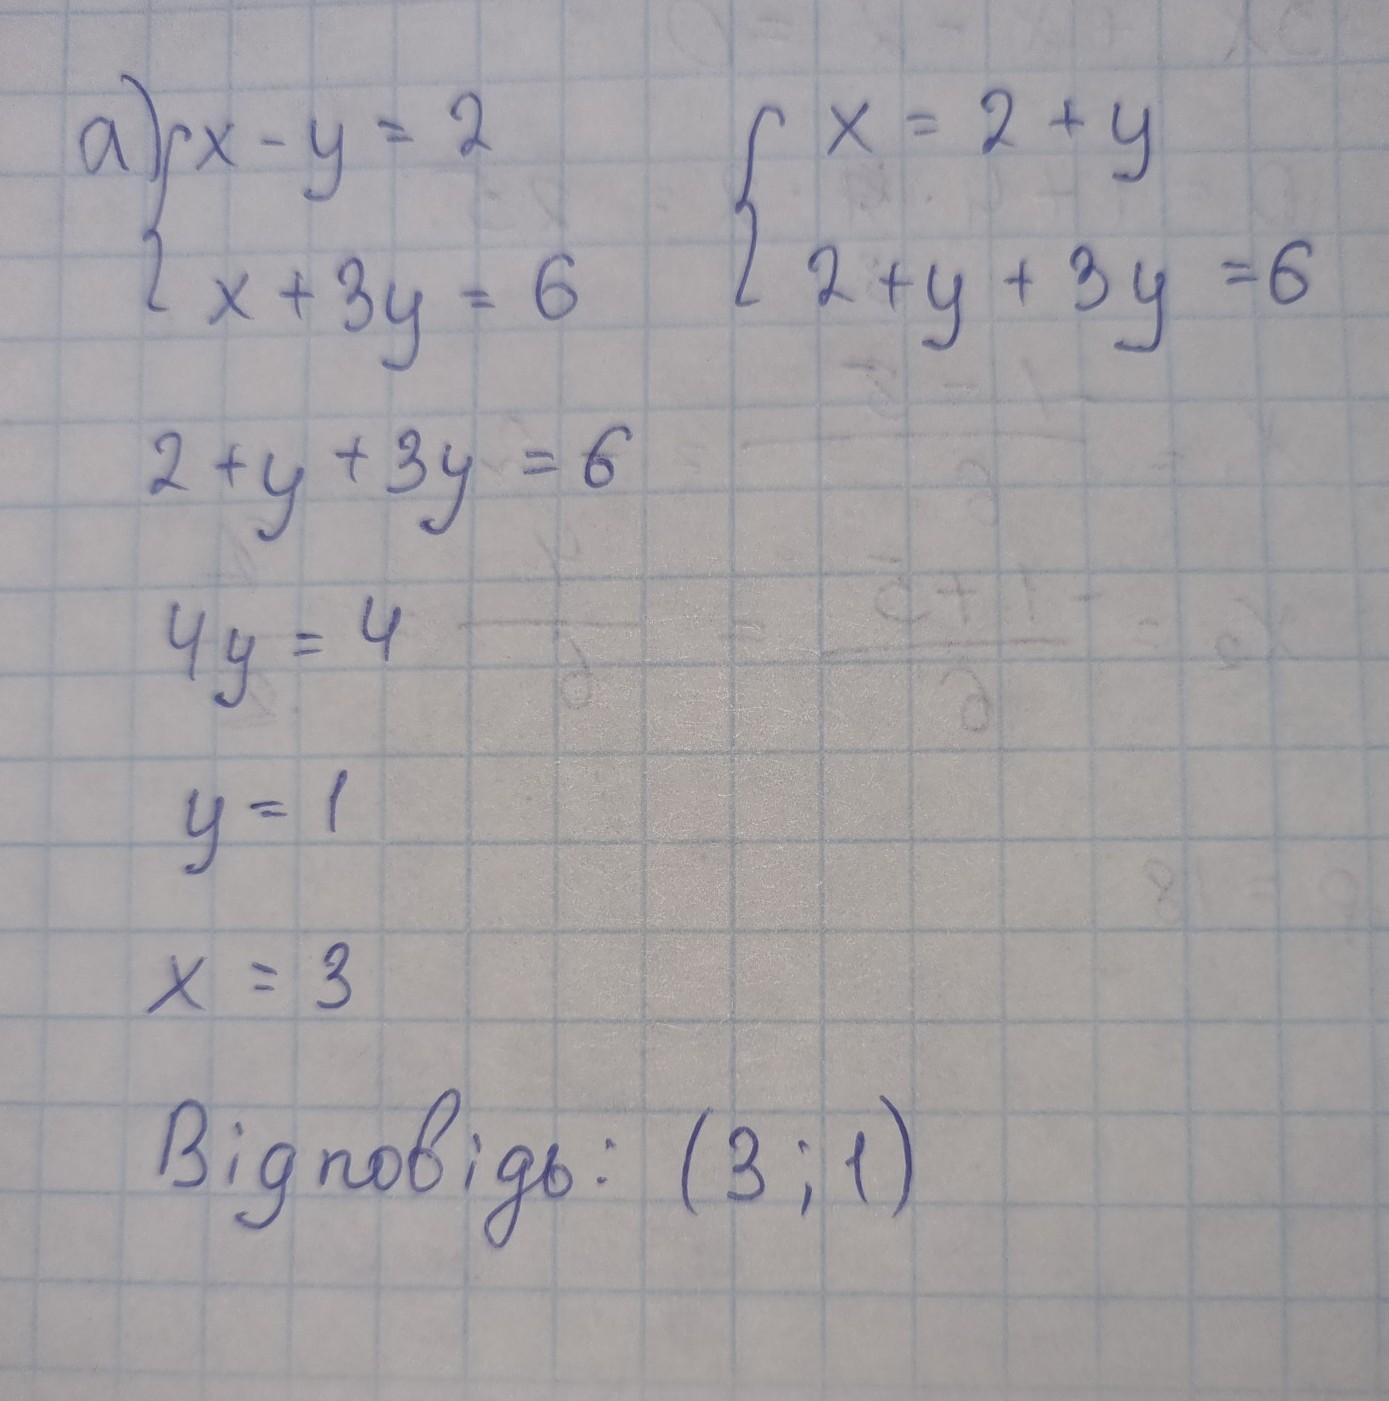 а) { x - y = 2    { x = 2 + y
{ x + 3y = 6    { 2 + y + 3y = 6
2 + y + 3y = 6
4y = 4
y = 1
x = 3
Відповідь: (3 ; 1)